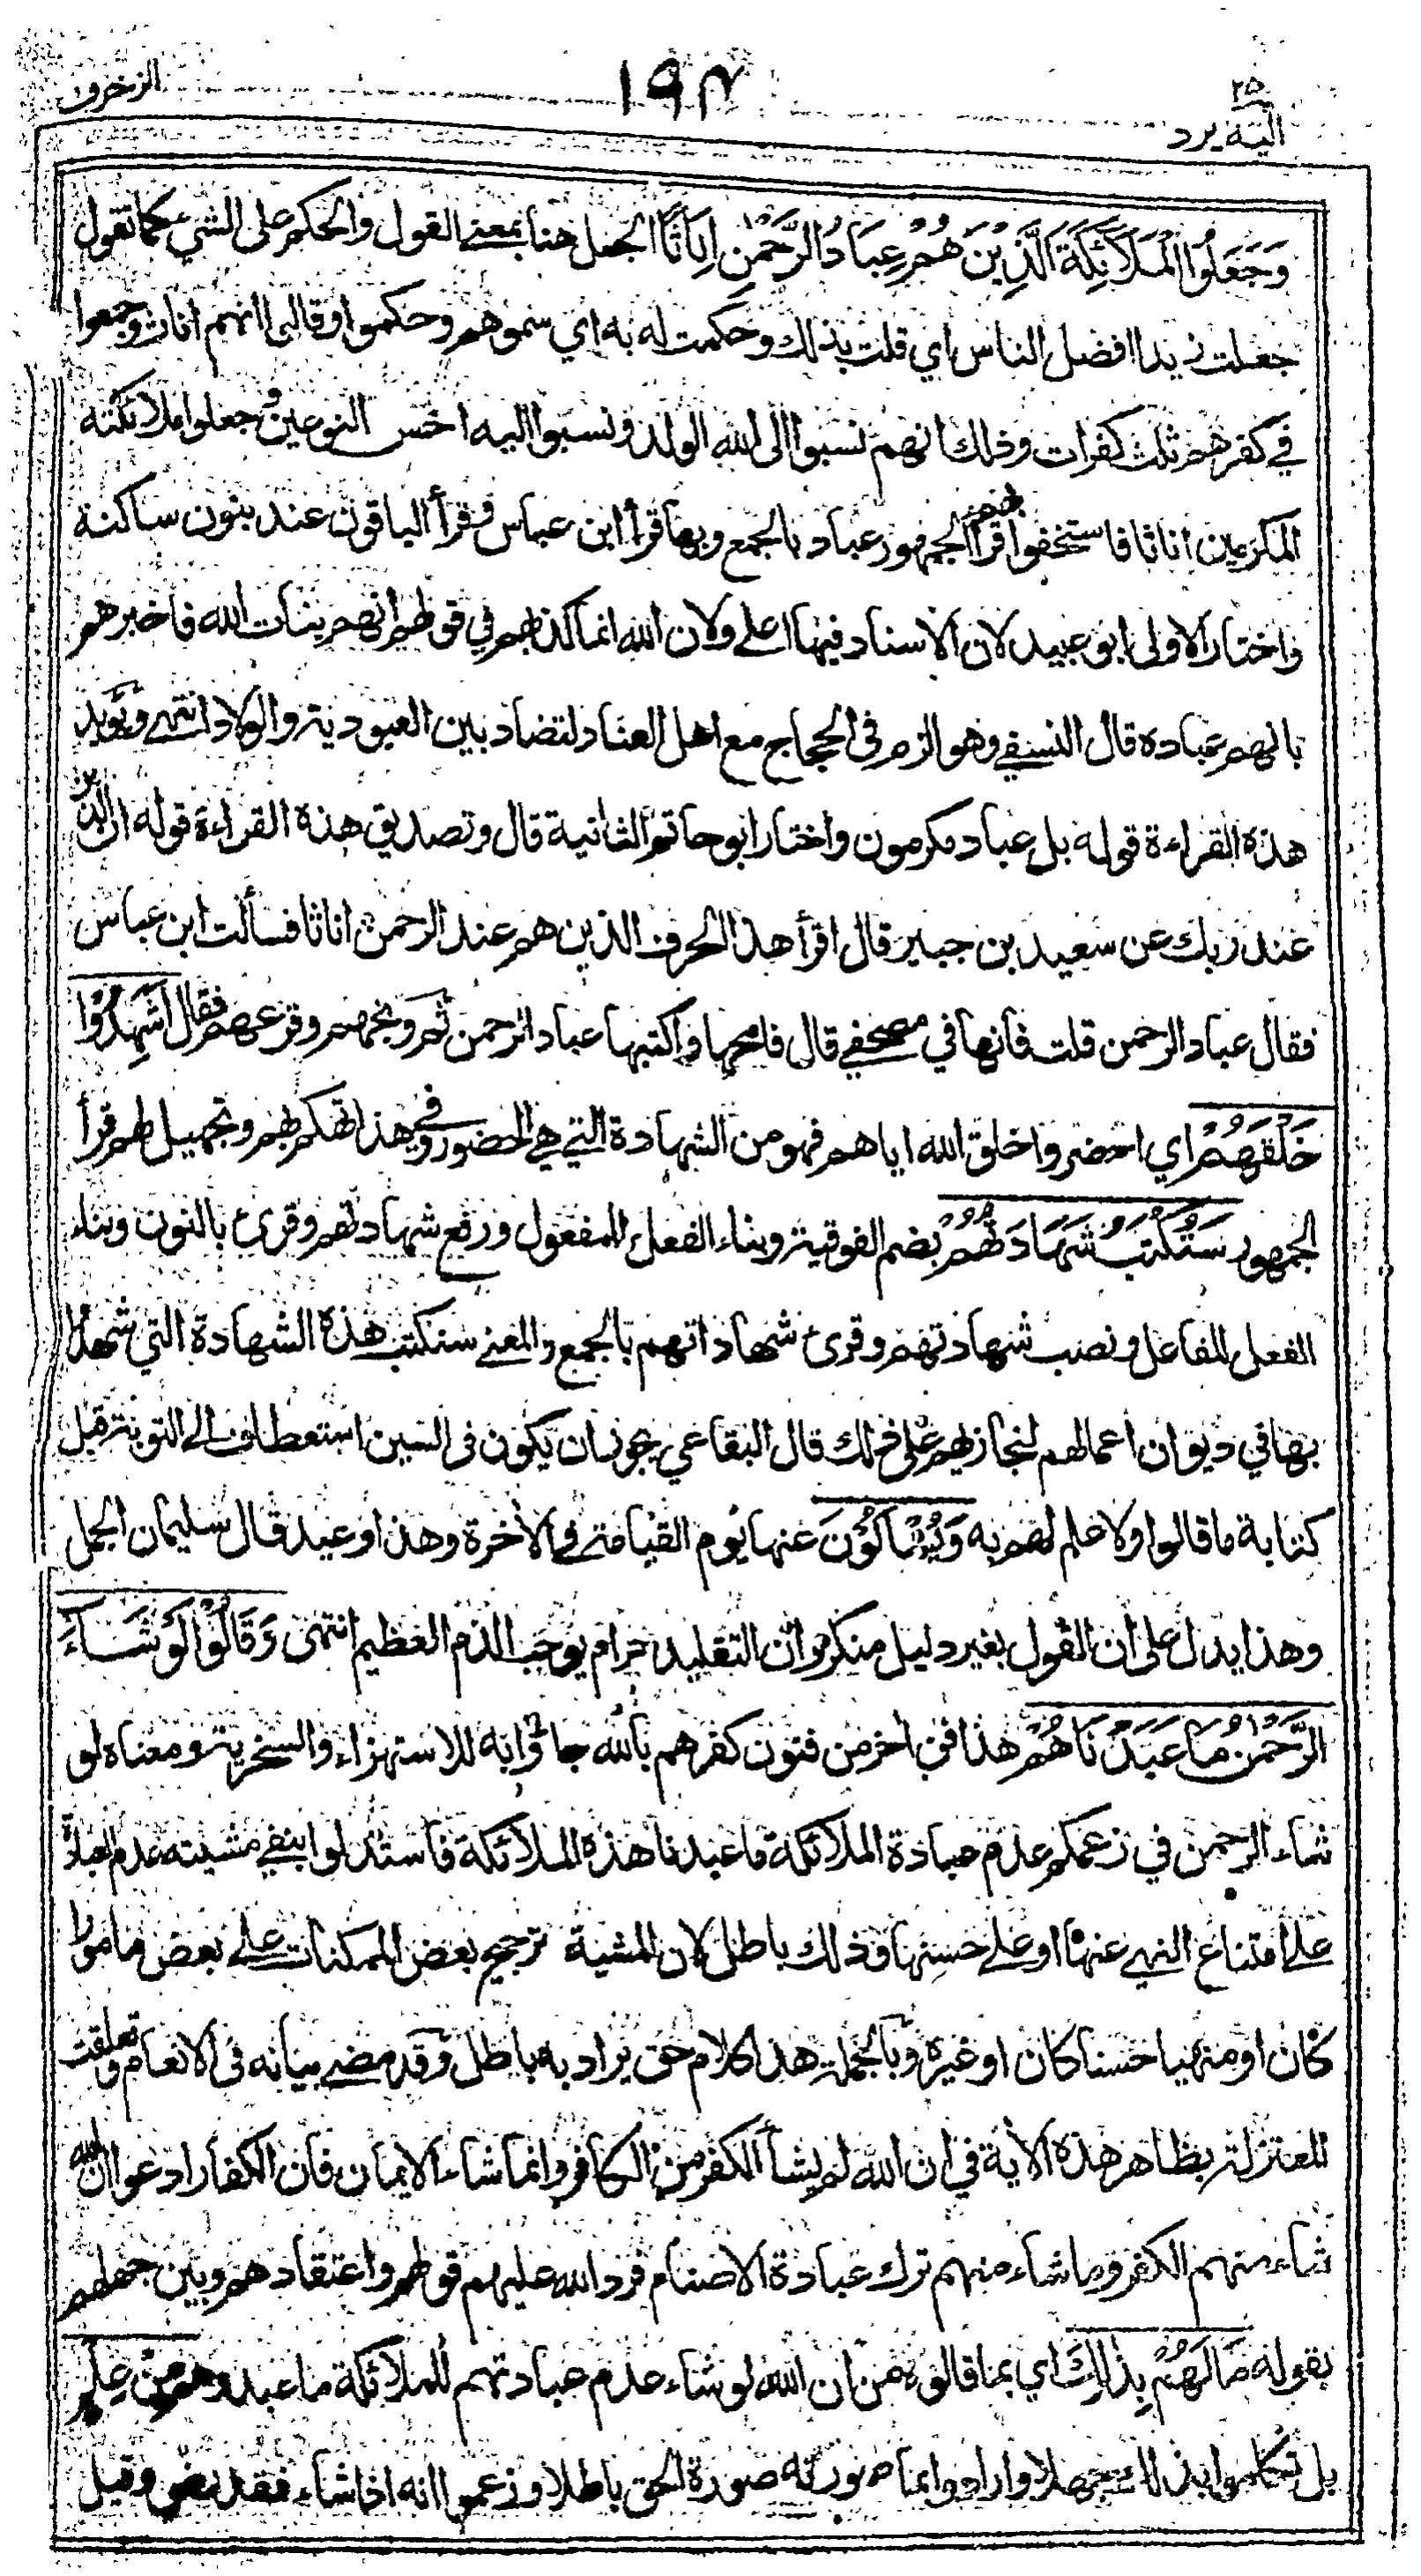 ٢٥
اليه يرد
١٩٣
الزخرف
وَجَعَلُوا الْمَلَائِكَةَ الَّذِيْنَ هُمْ عِبَادُ الرَّحْمٰنِ اِنَاثًا الجعل هنا بمعنى القول والحكم على الشيء كما تقول
جعلت زيدا افضل الناس اي قلت بذلك وحكمت له به اي سموهم وحكموا وقالوا انهم اناث وجمعوا
في كفرهم ثلث كفرات وذلك انهم نسبوا الى الله الولد ونسبوا اليه اخس النوعين وجعلوا ملائكته
المكرمين اناثا فاستخفوا قرأ الجمهور عباد بالجمع وبها قرأ ابن عباس وقرأ الباقون عند بنون ساكنة
واختار الاولى ابو عبيد لان الاسناد فيها اعلى ولان الله انما كذبهم في قولهم انهم بنات الله فاخبرهم
بانهم عباده قال النسفي وهو الزم في الحجاج مع اهل العناد لتضاد بين العبودية والولاد انتهى ويؤيد
هذه القراءة قوله بل عباد مكرمون واختار ابو حاتم الثانية قال وتصديق هذه القراءة قوله ان الذين
عند ربك عن سعيد بن جبير قال اقرأ هذا الحرف الذين هم عند الرحمن اناثا فسألت ابن عباس
فقال عباد الرحمن قلت فانها في مصحفي قال فامحها واكتبها عباد الرحمن ثم وبخهم وقرعهم فقال اَشَهِدُوْا
خَلْقَهُمْ اي احضروا خلق الله اياهم فهو من الشهادة التي هي الحضور وفي هذا تهكم بهم وتجهيل لهم قرأ
الجمهور سَتُكْتَبُ شَهَادَتُهُمْ بضم الفوقية وبناء الفعل للمفعول ورفع شهادتهم وقرئ بالنون وبناء
الفعل للفاعل ونصب شهادتهم وقرئ شهاداتهم بالجمع والمعنى سنكتب هذه الشهادة التي شهدوا
بها في ديوان اعمالهم لنجازيهم على ذلك قال البقاعي يجوز ان يكون في السين استعطاف الى التوبة قبل
كتابة ما قالوا ولا علم لهم به وَيُسْاَلُوْنَ عنها يوم القيامة في الآخرة وهذا وعيد قال سليمان الجمل
وهذا يدل على ان القول بغير دليل منكر وان التقليد حرام يوجب الذم العظيم انتهى وَقَالُوْا لَوْ شَاءَ
الرَّحْمٰنُ مَا عَبَدْنَاهُمْ هذا فن اخر من فنون كفرهم بالله جاؤا به للاستهزاء والسخرية ومعناه لو
شاء الرحمن في زعمكم عدم عبادة الملائكة ما عبدنا هذه الملائكة فاستدلوا بنفي مشيته عدم العبادة
على امتناع النهي عنها او على حسنها وذلك باطل لان المشية ترجيح بعض الممكنات على بعض مامورا
كان او منهيا حسنا كان او غيره وبالجملة هذا كلام حق يراد به باطل وقد مضى بيانه في الانعام وتعلقت
المعتزلة بظاهر هذه الآية في ان الله لم يشأ الكفر من الكافر وانما شاء الايمان فان الكفار ادعوا ان الله
شاء منهم الكفر وما شاء منهم ترك عبادة الاصنام فرد الله عليهم قولهم واعتقادهم وبين جهلهم
بقوله مَا لَهُمْ بِذٰلِكَ اي بما قالوه من ان الله لو شاء عدم عبادتهم للملائكة ما عبدوهم مِنْ عِلْمٍ
بل تكلموا بذلك جهلا وارادوا بما صورته صورة الحق باطلا وزعموا انه اذا شاء فقد رضي وقيل